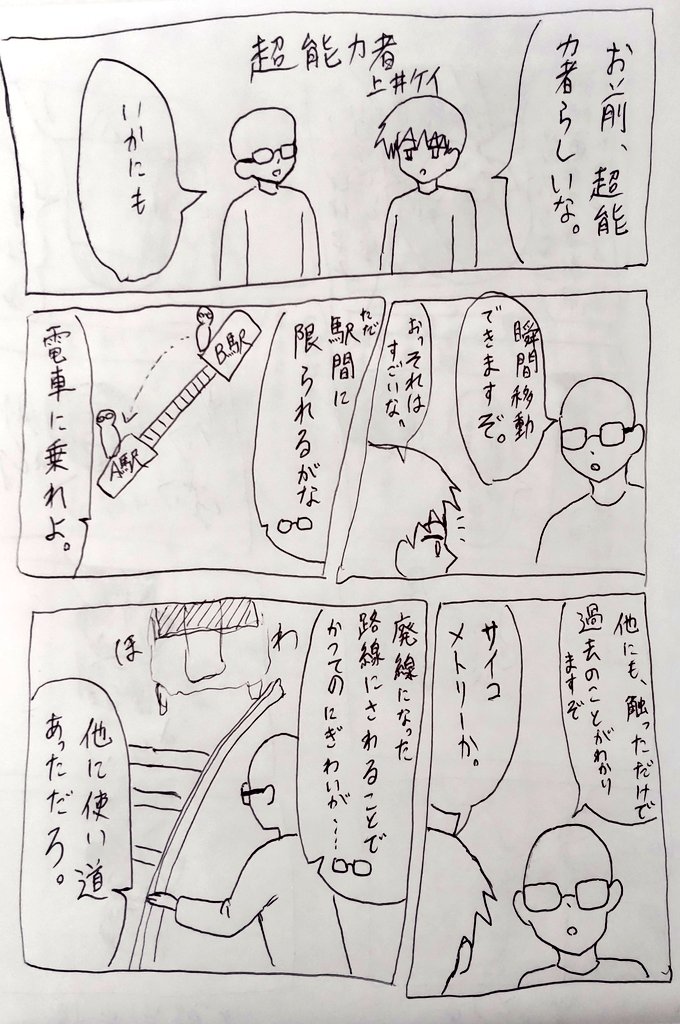 超能力者
上井ケイ
お前、超能
力者らしいな。
いかにも
瞬間移動
できますぞ。
おっそれは
すごいな。
ただ
駅間に
限られるがな
B駅
A駅
電車に乗れよ。
他にも、触っただけで
過去のことがわかり
ますぞ
サイコ
メトリーか。
廃線になった
路線にさわることで
かつてのにぎわいが……
ほわ
他に使い道
あっただろ。